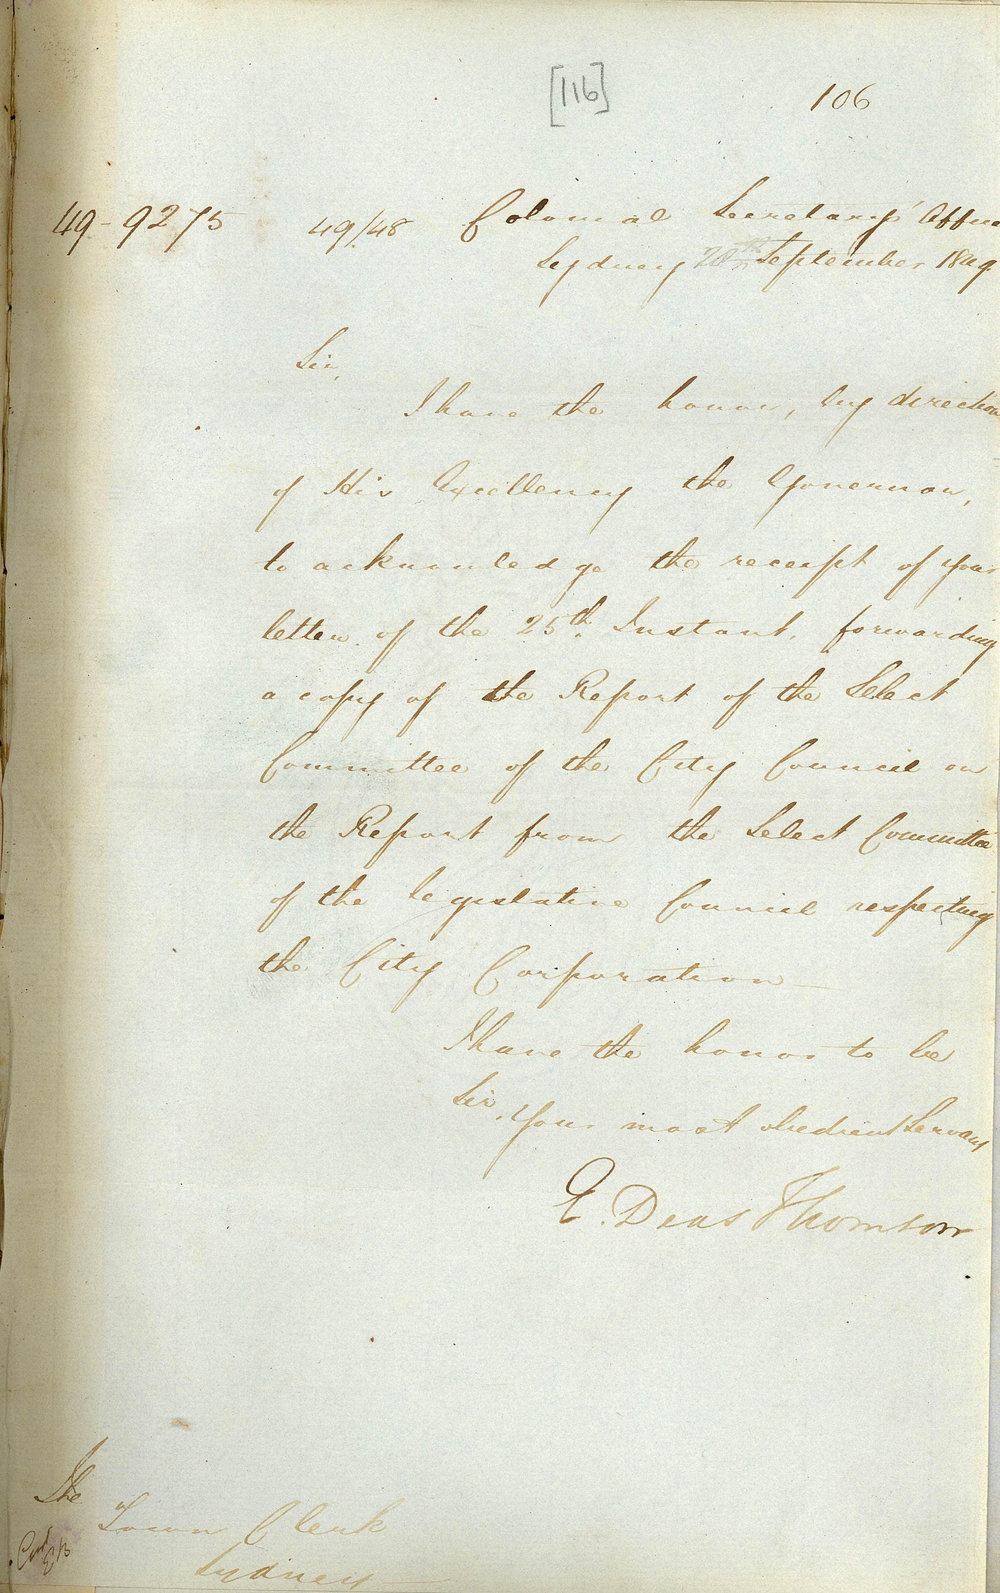 [116]
106
49-9275
49/48 Colonial Secretary's Office
Sydney September 1849.
Sir,
I have the honor, by direction
of His Excellency the Governor,
to acknowledge the receipt of your
letter of the 25th Instant, forwarding
a copy of the Report of the Select
Committee of the City Council on
the Report from the Select Committee
of the Legislative Council respecting
the City Corporation —
I have the honor to be
Sir,
Your most obedient Servant
E. Deas Thomson
The
Town Clerk
Sydney